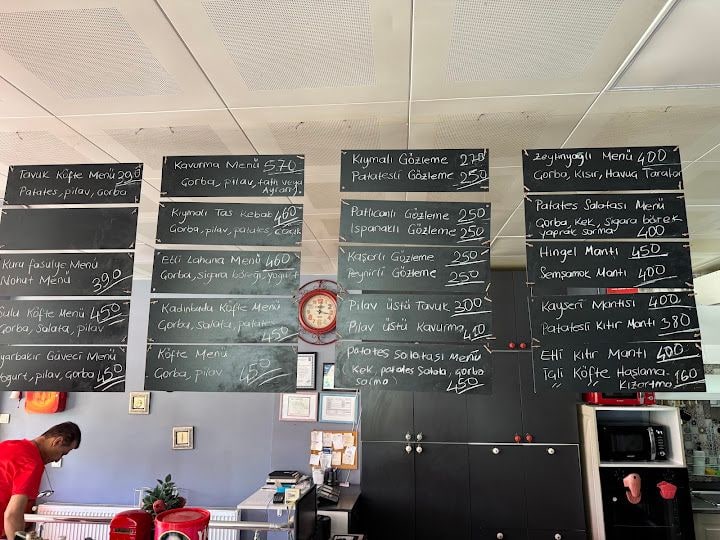 Tavuk Köfte Menü
Patates, pilav, Gorba
Kuru fasulye Menü
Nohut Menü 390
Sulu Köfte Menü 450
Gorba, Salata, pilav
Güveci Menü
pilav, Gorba 450
Kavurma Menü 570
Gorba, pilav, tatlı veya
Ayran
Kıymalı Tas Kebabı 460
Gorba, pilav, patates, cacık
Etli Lahana Menü 460
Gorba, sigara böreği, yoğurt
Kadınbudu Köfte Menü
Gorba, Salata, patates
450
Köfte Menü
Gorba, pilav 450
Kıymalı Gözleme 270
Patatesli Gözleme 250
Patlıcanlı Gözleme 250
Ispanaklı Gözleme 250
Kaşarlı Gözleme 250
Peynirli Gözleme 250
Pilav üstü Tavuk 200
Pilav üstü Kavurma
Patates Salatası Menü
(Kek, patates Salata, gorba
sarma) 450
Zeytinyağlı Menü 400
Gorba, Kısır, Havuç Tarator
Patates Salatası Menü
Gorba, Kek, Sigara börek
yaprak sarma 400
Hingel Mantı 450
Semşamak Mantı 400
Kayseri Mantısı 400
Patatesli Kıtır Mantı 380
Etli Kıtır Mantı 400
İçli Köfte Haşlama 160
" " Kızartma